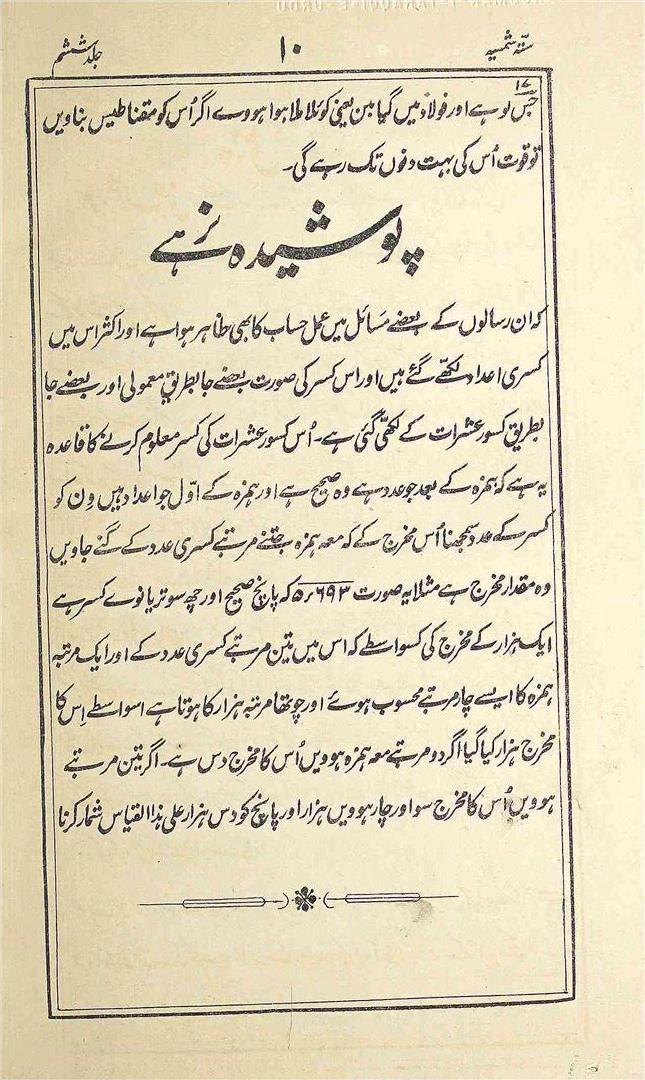 ستہ شمسیہ
۱۰
جلد ششم
۱۷
جس لوہے اور فولاد میں گیا بن یعنی کوئلا ملا ہوا ہووے اگر اُس کو مقناطیس بناویں
تو قوت اُس کی بہت دنوں تک رہے گی۔
پوشیدہ نرہے
کہ ان رسالوں کے بعضے مسائل میں عمل حساب کا بھی ظاہر ہوا ہے اور اکثر اس میں
کسری اعداد لکھّے گئے ہیں اور اس کسر کی صورت بعضے جا بطریق معمولی اور بعضے جا
بطریق کسور عشرات کے لکھّی گئی ہے۔ اُس کسور عشرات کی کسر معلوم کرنے کا قاعدہ
یہ ہے کہ ہمزہ کے بعد جو عدد ہے وہ صحیح ہے اور ہمزہ کے اوّل جو اعداد ہیں وِن کو
کسر کے عدد سمجھنا اُس مخرج کے کہ معہ ہمزہ جتنے مرتبے کسری عدد کے گنے جاویں
وہ مقدار مخرج ہے مثلا یہ صورت ۵٫۶۹۳ کہ پانچ صحیح اور چھ سو تریانوے کسر ہے
ایک ہزار کے مخرج کی کسواسطے کہ اس میں تین مرتبے کسری عدد کے اور ایک مرتبہ
ہمزہ کا ایسے چار مرتبے محسوب ہوئے اور چوتھا مرتبہ ہزار کا ہوتا ہے اسواسطے اِس کا
مخرج ہزار کیا گیا اگر دو مرتبے معہ ہمزہ ہوویں اُس کا مخرج دس ہے۔ اگر تین مرتبے
ہوویں اُس کا مخرج سو اور چار ہوویں ہزار اور پانچ کو دس ہزار علی ہذا القیاس شمار کرنا